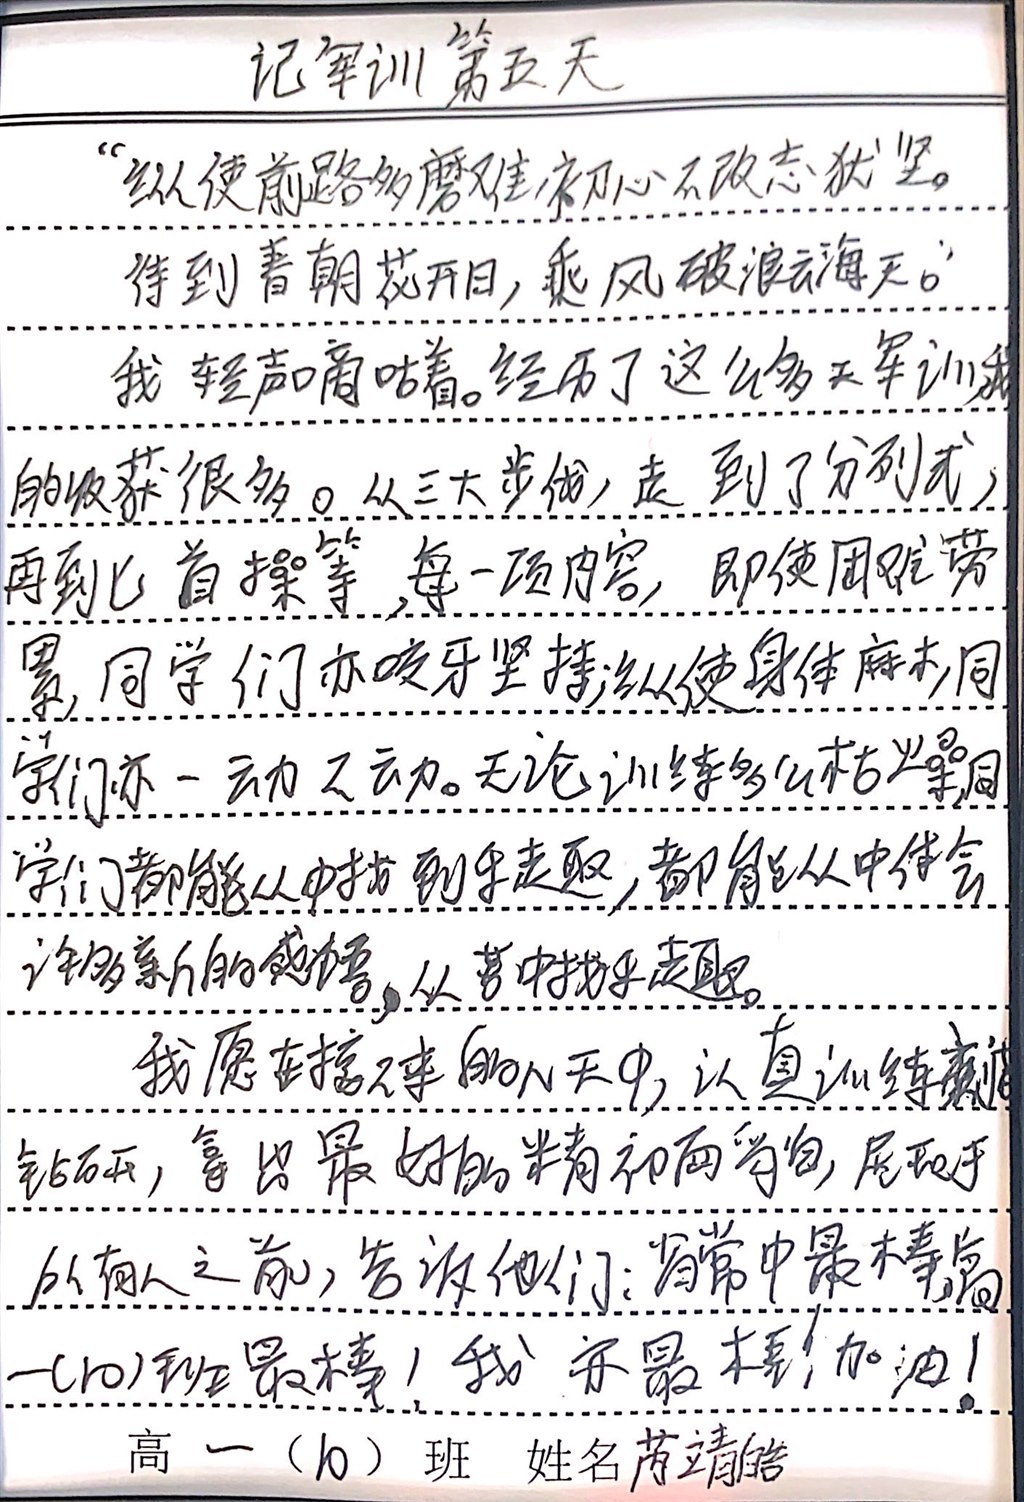 记军训第五天
“纵使前路多磨难,初心不改志犹坚。
待到春朝花开日,乘风破浪云海天。”
我轻声嘀咕着。经历了这么多天军训,我
的收获很多。从三大步伐,走到了分列式,
再到匕首操等,每一项内容,即使困难劳
累,同学们亦咬牙坚持;纵使身体麻木,同
学们亦一动不动。无论训练多么枯燥,同
学们都能从中找到乐趣,都能从中体会
许多新的感悟,从苦中找乐趣。
我愿在接下来的几天中,认真训练,
钻研,拿出最好的精神面貌,展现于
所有人之前,告诉他们:省常中最棒,高
一(10)班最棒!我亦最棒!加油!
高一(10)班 姓名芮靖皓